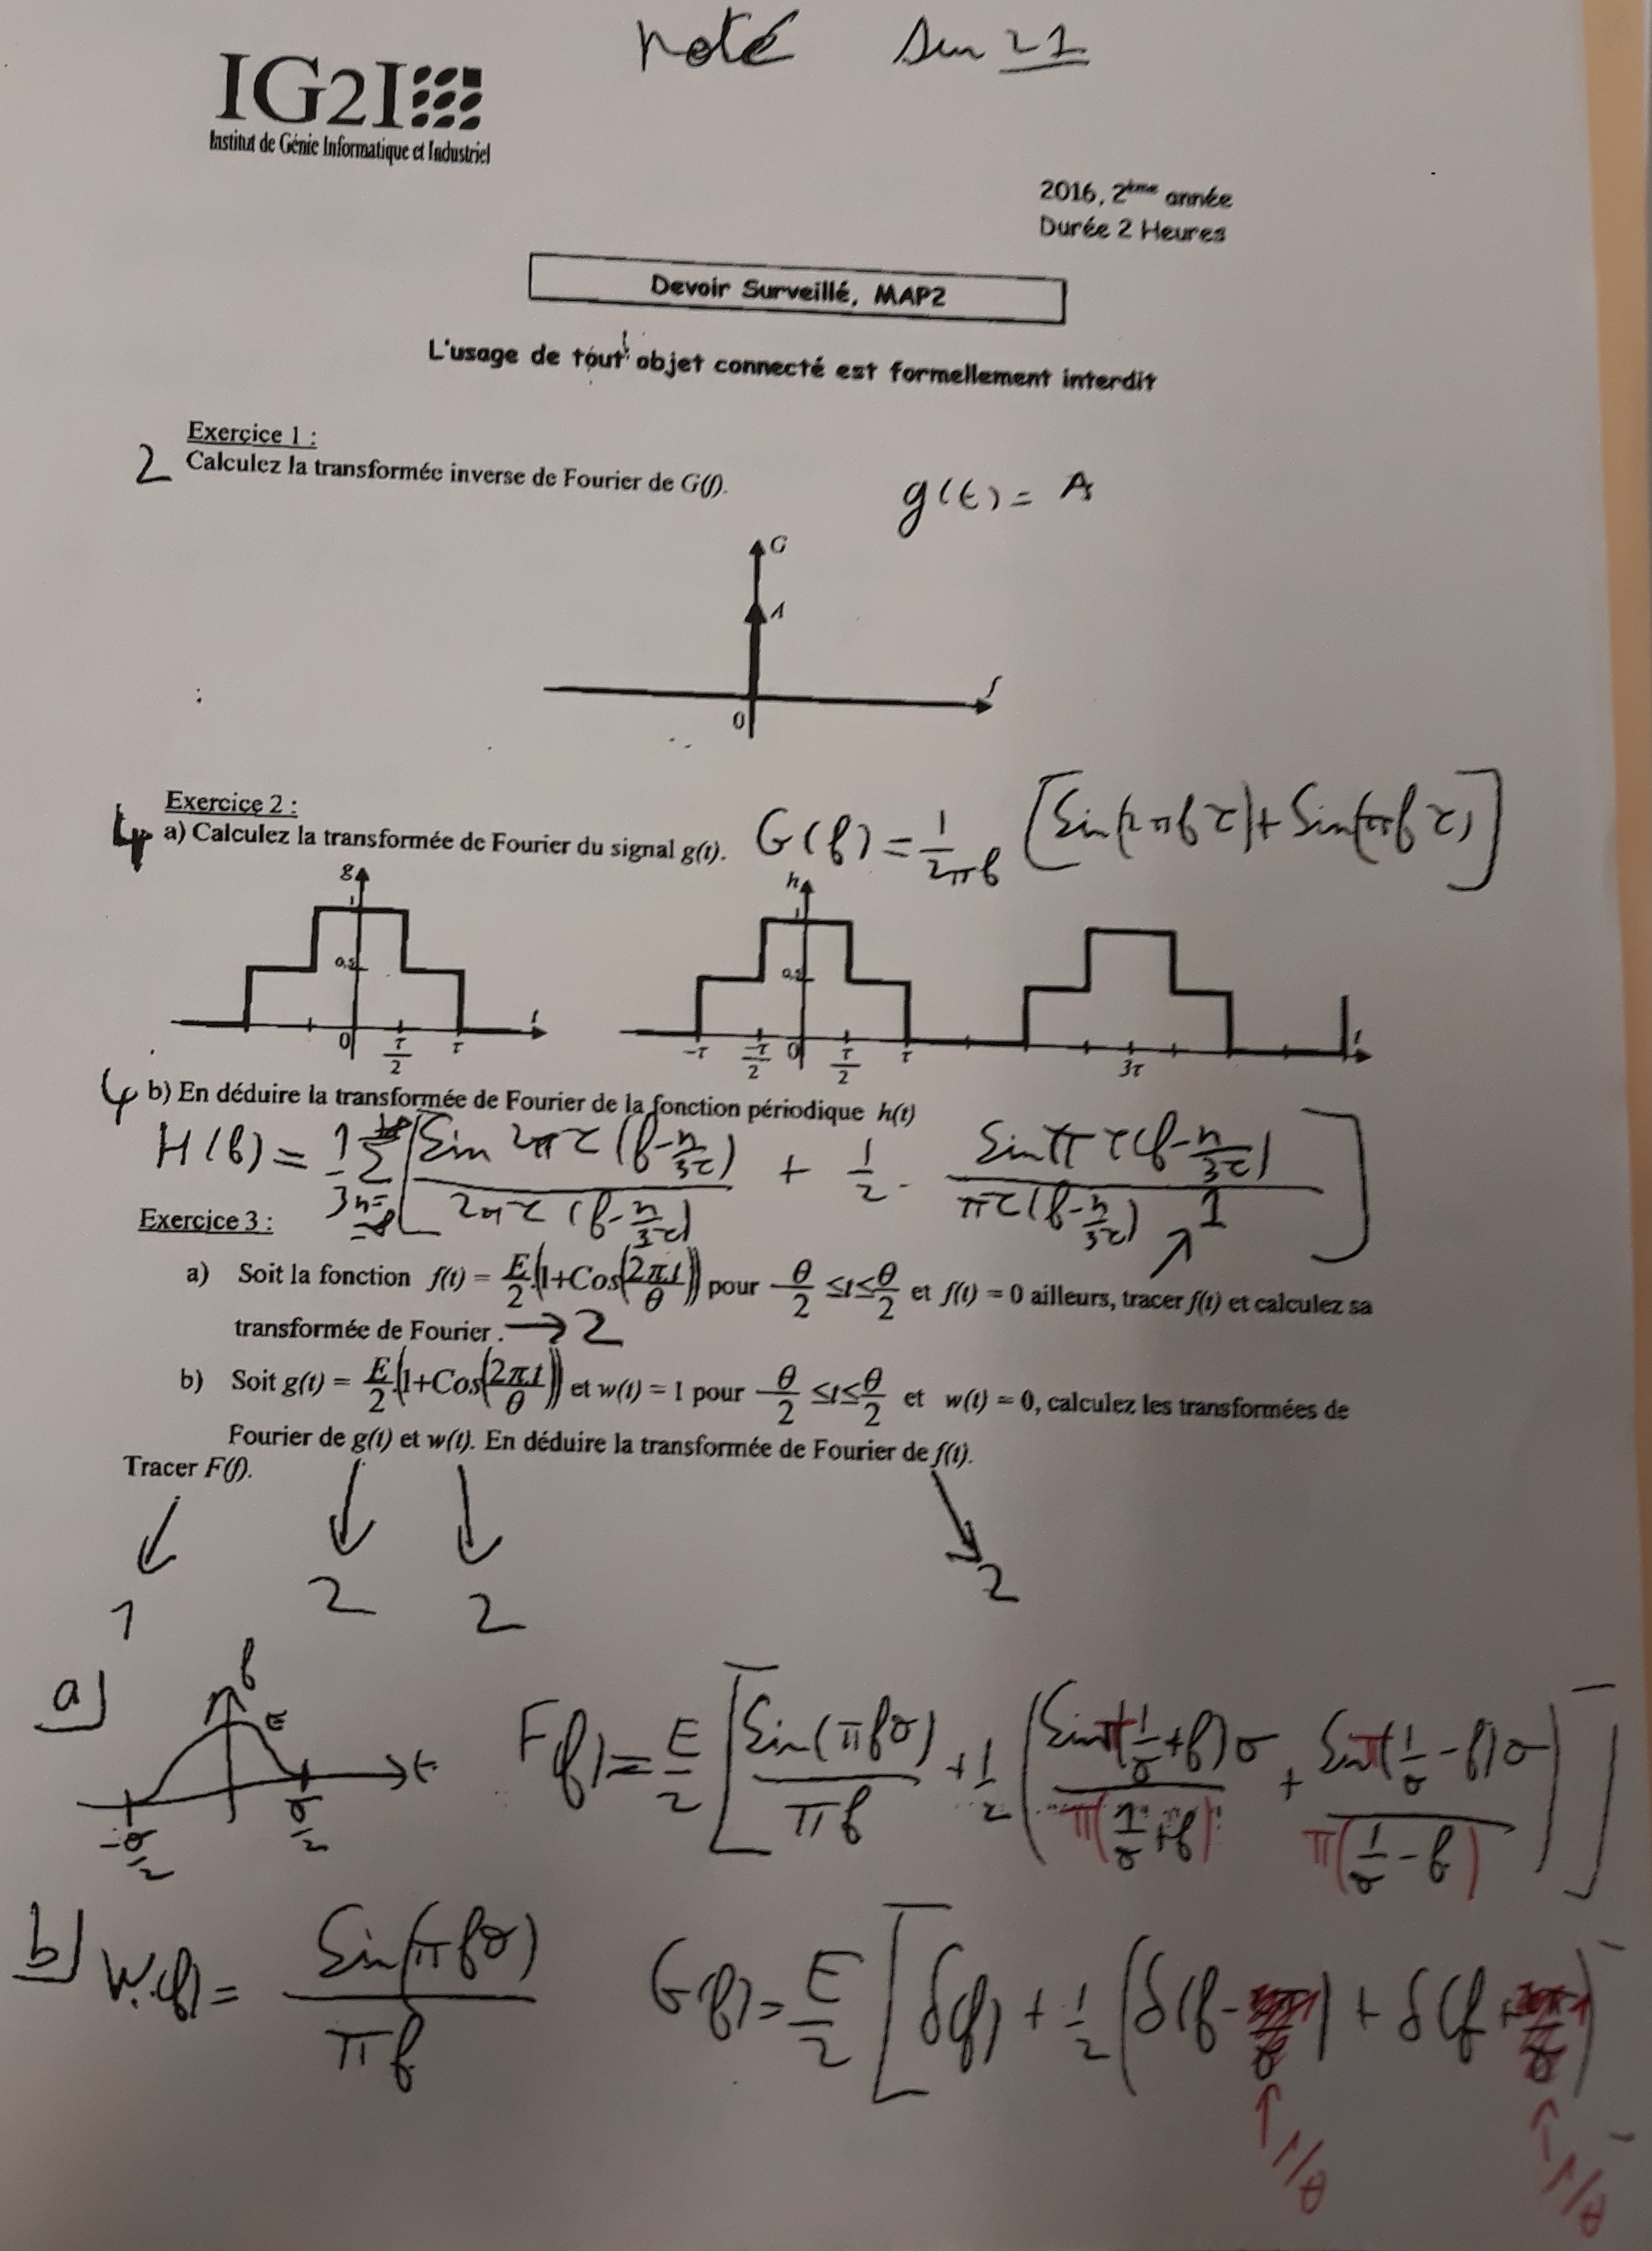 noté sur 21
IG2I
Institut de Génie Informatique et Industriel
2016, 2ème année
Durée 2 Heures
Devoir Surveillé, MAP2
L'usage de tout objet connecté est formellement interdit
Exercice 1 :
2 Calculez la transformée inverse de Fourier de G(f).
g(t) = A
G
A
f
0
Exercice 2 :
4 a) Calculez la transformée de Fourier du signal g(t). G(f) = 1/2πf [Sin(2πfτ) + Sin(πfτ)]
g 1 0.5 0 τ/2 τ t
h 1 0.5 -τ -τ/2 0 τ/2 τ 3τ t
4 b) En déduire la transformée de Fourier de la fonction périodique h(t)
H(f) = 1/3 Σ n=-∞ +∞ [Sin 2πτ(f-n/3τ) / 2πτ(f-n/3τ) + 1/2 . Sin π τ(f-n/3τ) / πτ(f-n/3τ)]
Exercice 3 :
1
a) Soit la fonction f(t) = E/2.(1+Cos(2π.t/θ)) pour -θ/2 ≤t≤ θ/2 et f(t) = 0 ailleurs, tracer f(t) et calculez sa
transformée de Fourier . → 2
b) Soit g(t) = E/2.(1+Cos(2π.t/θ)) et w(t) = 1 pour -θ/2 ≤t≤ θ/2 et w(t) = 0, calculez les transformées de
Fourier de g(t) et w(t). En déduire la transformée de Fourier de f(t).
Tracer F(f).
1 2 2 2
a) f E t -θ/2 θ/2
F(f) = E/2 [Sin(πfθ)/πf + 1/2 (Sin π(1/θ+f)θ / π(1/θ+f) + Sin π(1/θ-f)θ / π(1/θ-f))]
b) W(f) = Sin(πfθ)/πf G(f) = E/2 [δ(f) + 1/2 (δ(f- ) + δ(f+ ))]
1/θ 1/θ